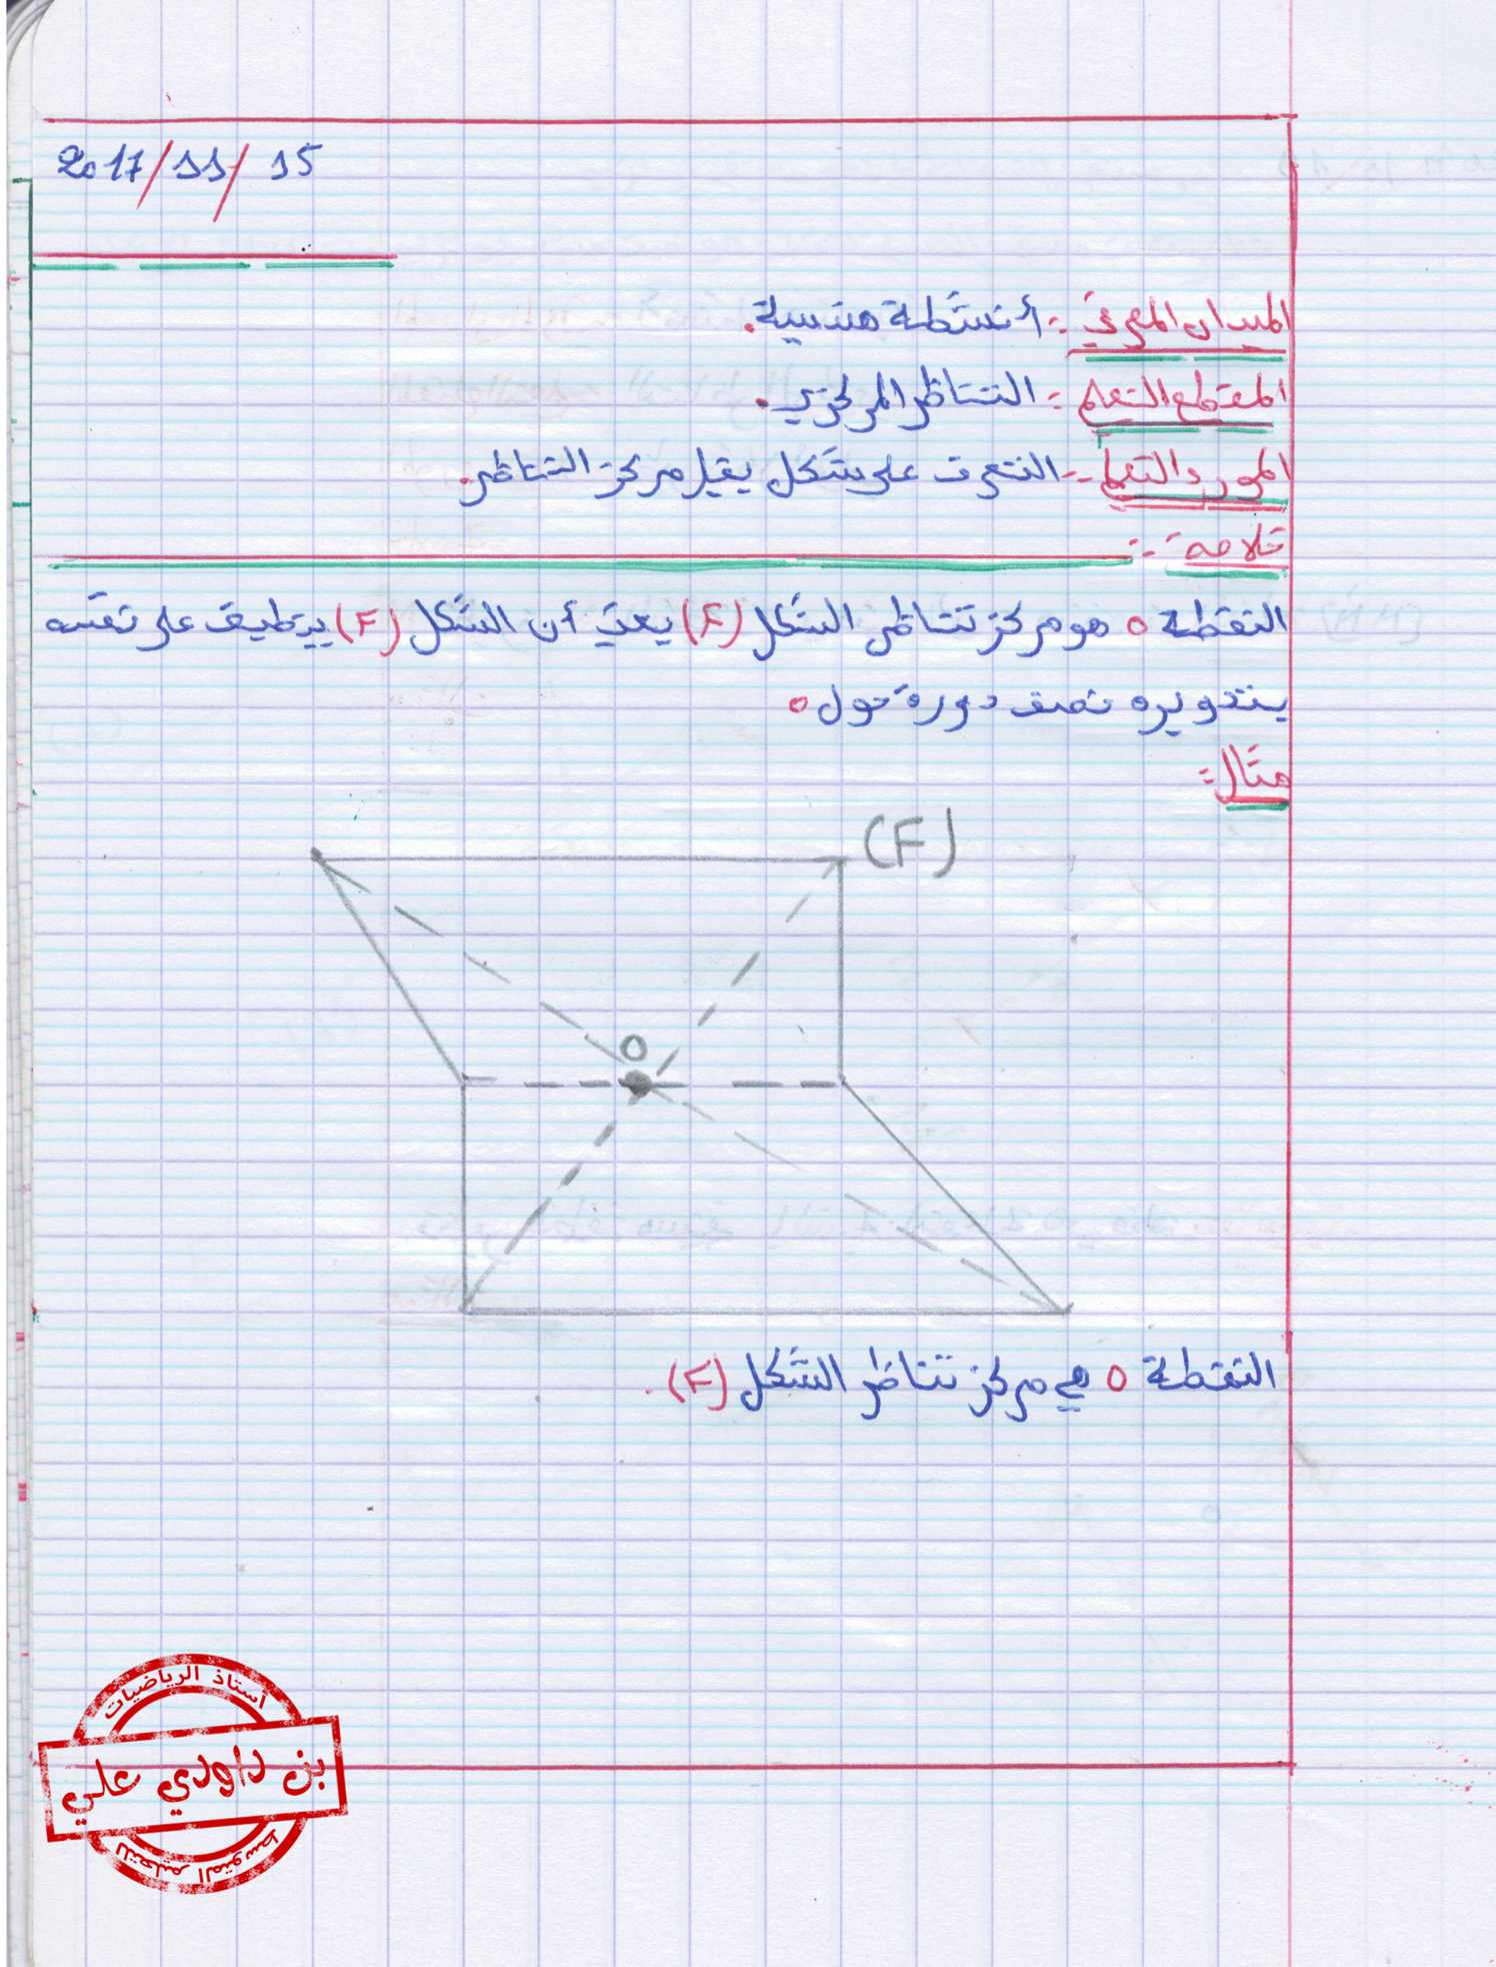 2017/11/15
الميدان المعرفي :- أنشطة هندسية.
المقطع التعلم :- التناظر المركزي.
المورد التعلم :- التعرف على شكل يقبل مركز التناظر.
خلاصة :-
النقطة O هو مركز تناظر الشكل (F) يعني أن الشكل (F) ينطبق على نفسه
بتدويره نصف دورة حول O
مثال:
(F)
O
النقطة O هي مركز تناظر الشكل (F).
أستاذ الرياضيات
بن داودي علي
للتعليم المتوسط